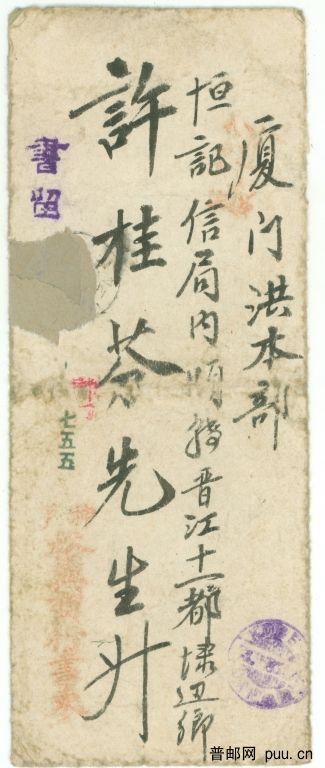 廈门洪本部
恒記信局内明轉晋江十一都埭边鄉
許桂芬先生升
書留
七五五
普邮网 puu.cn